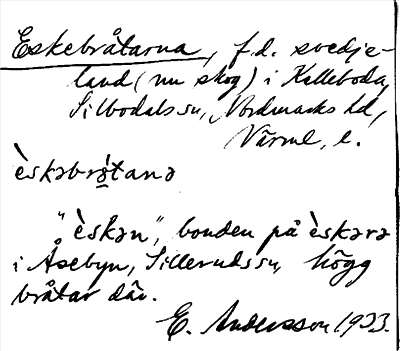 Eskebråtarna, f.d. svedje-
land (nu skog) i Kalleboda,
Silbodals sn, Nordmarks hd,
Värml. l.
èskəbrå̀tanə
"èskən", bonden på èskərə
i Åsebyn, Silleruds sn, högg
bråtar där.
E. Andersson 1933.